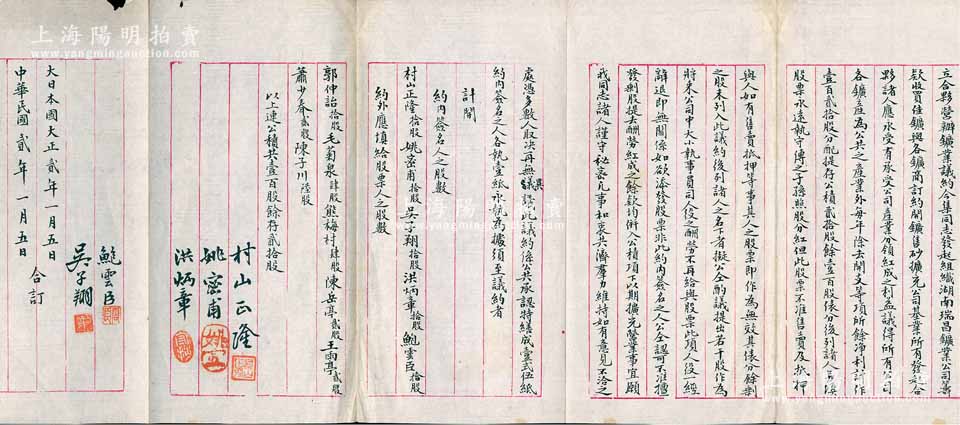 立合夥營辦鑛業議約合集同志發起組織湖南瑞昌鑛業公司籌
欵收買佳鑛與各鑛商訂約開鑛售砂擴充公司基業所有發起合
夥諸人應永受有承受公司產業分領紅成之利益議得所有公司
各鑛產為公共之產業外每年除去開支等項所餘净利訂作
壹百貳拾股分配提存公積貳拾股餘壹百股俵分後列諸人管塡
股票永遠執守傳之子孫照股分紅但此股票不准售賣及抵押
與人如有售賣抵押等事其人之股票即作為無效其俵分餘剩
之股未列入此議約後列諸人之名下者擬公仝酌議提出若干股作為
將來公司中大小執事員司人役之酬勞不再給與股票此項人役一經
辭退即無關係如欲添發股票非此約內簽名之人公仝認可不准擅
發剩股提去酬勞紅成之餘欵均併入公積項下以期擴充營業事宜願
我同志諸人謹守秘密凡事和衷共濟羣力維持如有意見不洽之
處憑多數人取決再無異議此議約係公共承認特繕成壹式伍紙
約內簽名之人各執壹紙永執為據須至議約者
計開
約內簽名人之股數
村山正隆拾股 姚宻甫拾股 吳子翔拾股 洪炳章拾股 鮑雲臣拾股
約外應塡給股票人之股數
郭仲詒拾股 毛菊泉肆股 熊梅村肆股 陳岳亭貳股 王雨亭貳股
蕭少春貳股 陳子川陸股
以上連公積共壹百股餘存貳拾股
村山正隆
姚宻甫
洪炳章
鮑雲臣
吳子翔
合訂
大日本國大正貳年一月五日
中華民國貳年一月五日
上海陽明拍賣
www.yangmingauction.com
上海陽明拍賣
www.yangmingauction.com